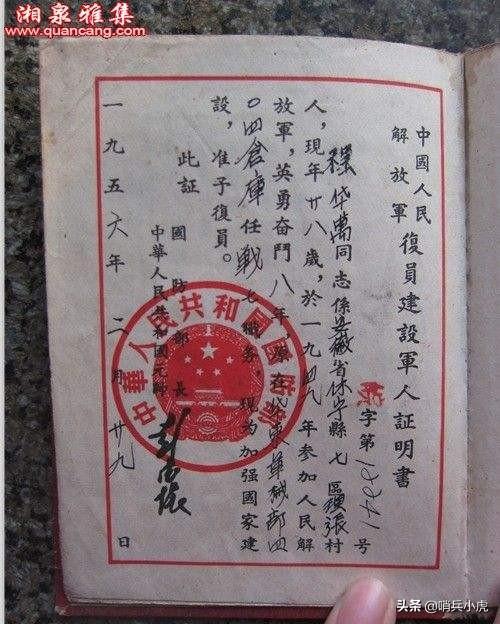 湘泉雅集
www.quancang.com
中國人民解放軍 復員建設軍人証明書
字第10241号
程岱萬同志係安徽省休宁縣七區張村
人，現年廿八歲，於一九四九年參加人民解
放軍，英勇奋鬥八年，原在華東軍械部四
〇四倉庫任戰士職务，現为加强國家建
設，准予復員。
此証
國防部長
中華人民共和國元帥 彭德懷
中華人民共和國國防部
一九五六年二月廿九日
头条 @哨兵小虎